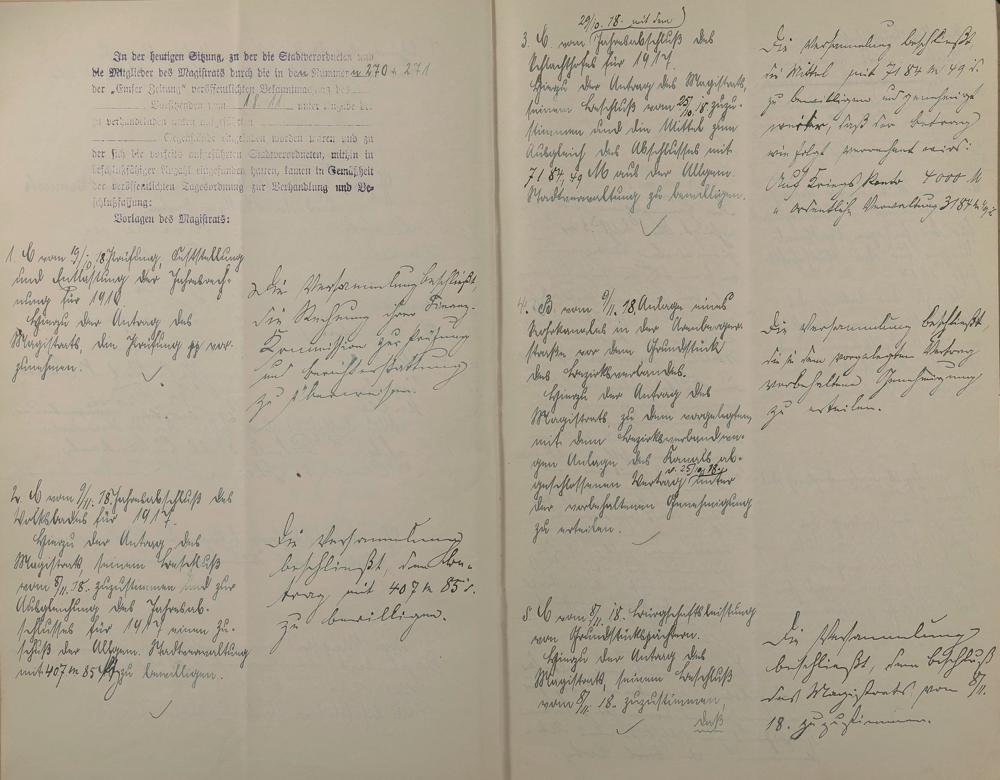 In der heutigen Sitzung, zu der die Stadtverordneten und
die Mitglieder des Magistrats durch die in den Nummern 270 + 271
der „Emser Zeitung" veröffentlichten Bekanntmachung des
Vorsitzenden zum 18 11 unter Angabe der
zu verhandelnden unten aufgeführten
Gegenstände eingeladen worden waren und zu
der sich die vorseits aufgeführten Stadtverordneten, mithin in
beschlußfähiger Anzahl eingefunden hatten, kamen in Gemäßheit
der veröffentlichten Tagesordnung zur Verhandlung und Be-
schlußfassung:
Vorlagen des Magistrats:
1. E vom 19/10. 18 Prüfung, Feststellung
und Entlastung der Jahresrech-
nung für 1916.
Hierzu der Antrag des
Magistrats, die Prüfung pp vor-
zunehmen.
Die Versammlung beschließt,
die Rechnung ihrer Finanz-
Kommission zur Prüfung
und Berichterstattung
zu überweisen.
2. E vom 9/11. 18. Jahresabschluß des
Volksbades für 1917.
Hierzu der Antrag des
Magistrats seinem Beschluß
vom 8/11. 18. zuzustimmen und zur
Ausgleichung des Jahresab-
schlusses für 1917 einen Zu-
schuß der Allgem. Stadtverwaltung
mit 407 M 85 zu bewilligen.
Die Versammlung
beschließt, den Be-
trag mit 407 M 85
zu bewilligen.
29/10. 18. mit dem
3. E. vom Jahresabschluß des
Schlachthofes für 1917.
Hierzu der Antrag des Magistrats,
seinem Beschluß vom 25/10. 18. zuzu-
stimmen und die Mittel zum
Ausgleich des Abschlusses mit
7184,49 M aus der Allgem.
Stadtverwaltung zu bewilligen.
Die Versammlung beschließt
die Mittel mit 7184 M 49
zu bewilligen und genehmigt
weiter, daß der Betrag
wie folgt verrechnet wird:
Auf Kriegs Konto 4000 M
" ordentliche Verwaltung 3184 M
4. B. vom 9/11. 18, Anlage eines
Rohrkanales in der Arenberger-
straße vor dem Grundstück
des Bezirksverbandes.
Hierzu der Antrag des
Magistrats, zu dem vorgelegten,
mit dem Bezirksverband we-
gen Anlage des Kanals ab-
geschlossenen Vertrag v. 25/10. 18. unter
der vorbehaltenen Genehmigung
zu erteilen.
Die Versammlung beschließt,
die in dem vorgelegten Vertrag
vorbehaltene Genehmigung
zu erteilen.
5. E vom 8/11. 18. Bürgschaftsleistung
von Grundstückspächtern.
Hierzu der Antrag des
Magistrats, seinem Beschluß
vom 8/11. 18. zuzustimmen,
daß
Die Versammlung
beschließt, dem Beschluß
des Magistrats vom 8/11.
18. zuzustimmen.